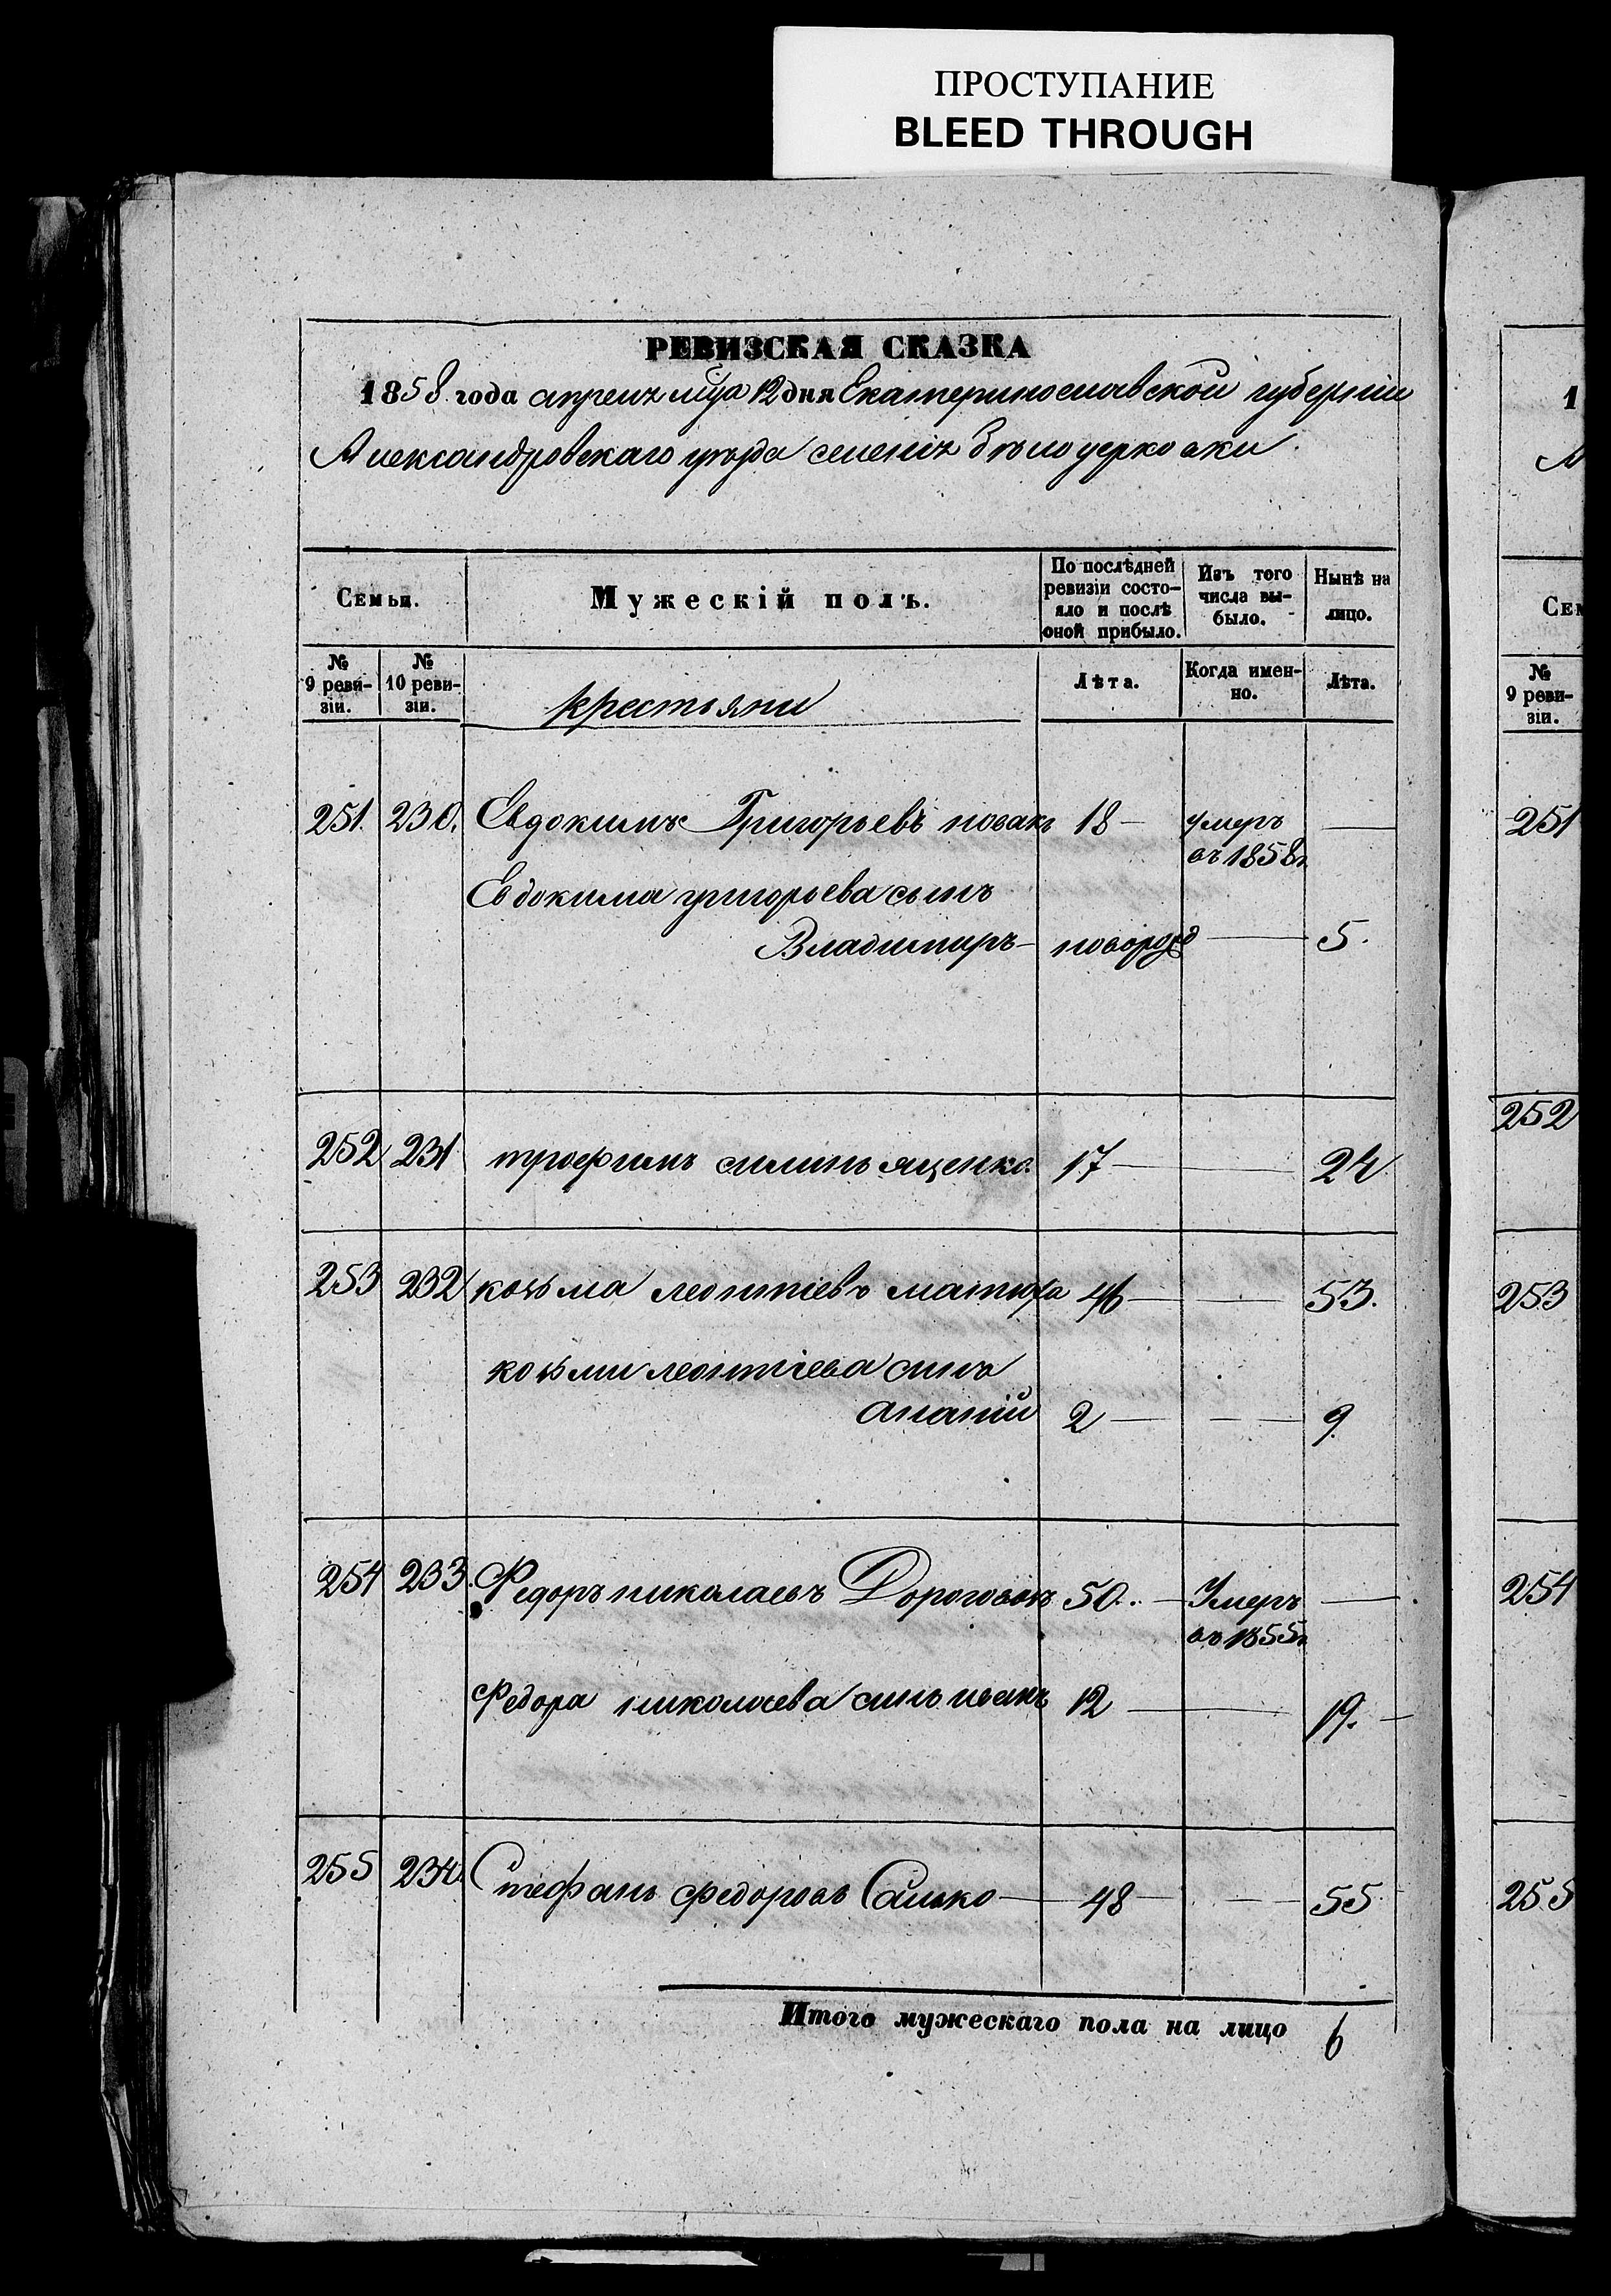 ПРОСТУПАНИЕ
BLEED THROUGH
РЕВИЗСКАЯ СКАЗКА
1858 года апреля мца 12 дня Екатеринославской губерніи
Александровскаго уезда селенія Белоцерковки
Семьи.
Мужескій полъ.
По послѣдней ревизіи состо-
яло и послѣ
оной прибыло.
Изъ того
числа вы-
было.
Нынѣ на
лицо.
№
9 реви-
зіи.
№
10 реви-
зіи.
крестьяни
Лѣта.
Когда имен-
но.
Лѣта.
251. 230. Евдокимъ Григорьевъ новакъ 18 — умеръ —
въ 1858г.
Евдокима григорьева сынъ
Владимиръ — новорож — 5.
252 231 трофимъ силинъ яценко 17 — — 24
253 232 козьма леонтіевъ матюха 46 — — 53.
козьми леонтіева синъ
ананій 2 — — — 9.
254 233. Федоръ николаевъ 50. — Умеръ —
въ 1855г.
Федора николаева синъ иванъ 12 — — 19. —
255 234. Стефанъ федоровъ Салько — 48 — — 55.
Итого мужескаго пола на лицо 6
1
А
Сем
№
9 реви-
зіи.
251
252
253
254
255